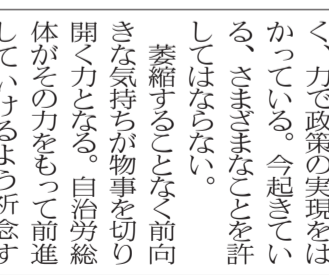 く、力で政策の実現をは
かっている。今起きてい
る、さまざまなことを許
してはならない。
　萎縮することなく前向
きな気持ちが物事を切り
開く力となる。自治労総
体がその力をもって前進
していけるよう祈念す